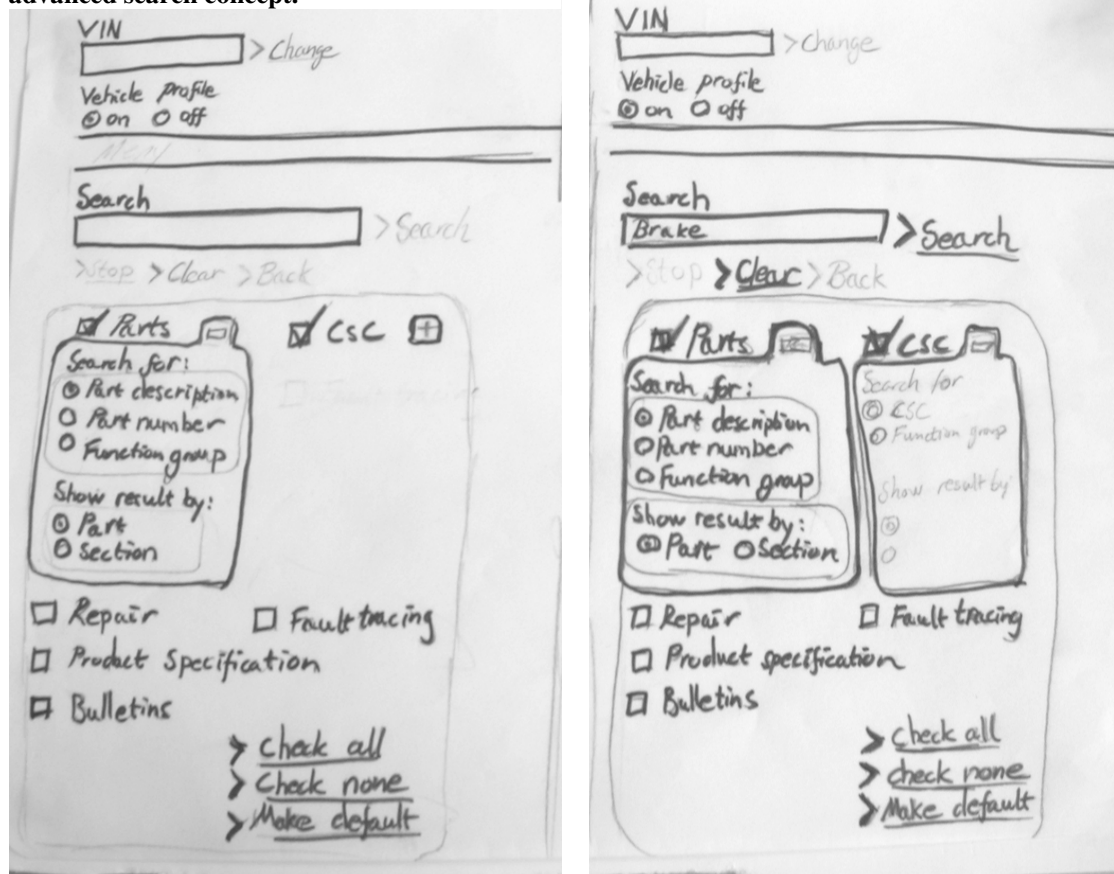 advanced search concept.
VIN
> Change
Vehicle profile
on off
Menu
Search
> Search
> Stop > Clear > Back
Parts CSC
Search for:
Part description
Part number
Function group
Show result by:
Part
Section
Repair Fault tracing
Product Specification
Bulletins
> Check all
> Check none
> Make default
VIN
> Change
Vehicle profile
on off
Search
Brake > Search
> Stop > Clear > Back
Parts CSC
Search for:
Part description
Part number
Function group
Show result by:
Part Section
Search for
CSC
Function group
Show result by
Repair Fault tracing
Product specification
Bulletins
> Check all
> check none
> Make default